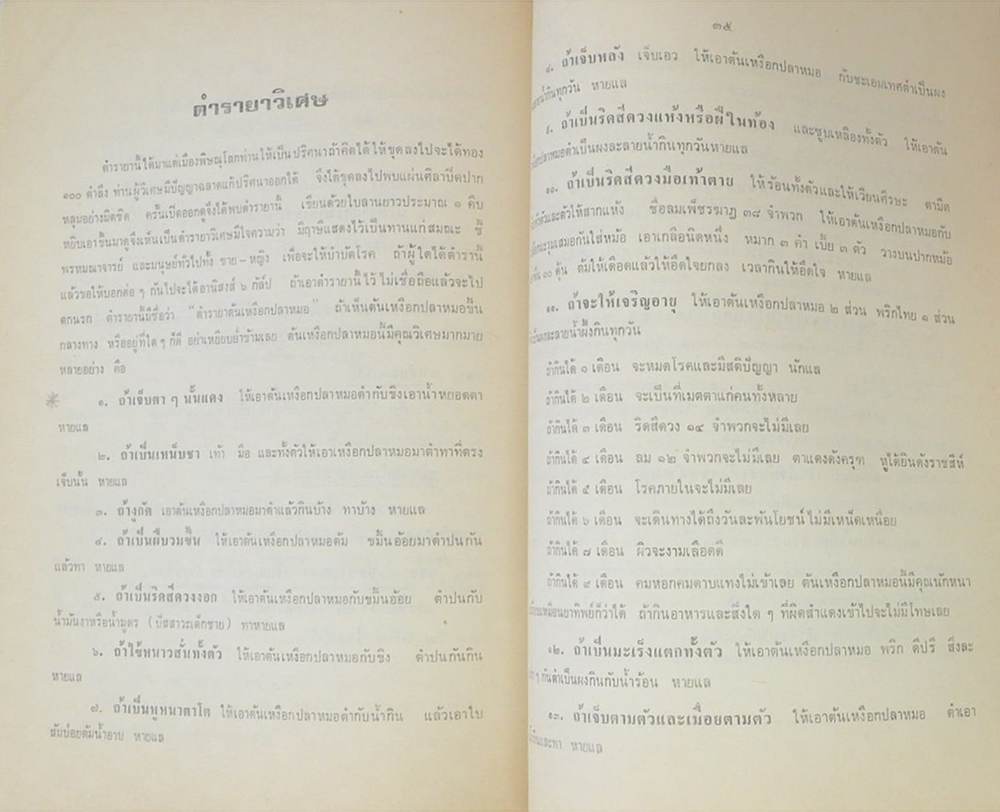 ตำรายาวิเศษ
ตำรายานี้ได้มาแต่เมืองพิษณุโลกท่านให้เป็นปริศนาถ้าคิดได้ให้ขุดลงไปจะได้ทอง
๑๐๐ ตำลึง ท่านผู้วิเศษมีปัญญาฉลาดแก้ปริศนาออกได้ จึงได้ขุดลงไปพบแผ่นศิลาปิดปาก
หลุมอย่างมิดชิด ครั้นเปิดออกดูจึงได้พบตำรายานี้ เขียนด้วยใบลานยาวประมาณ ๑ คืบ
หยิบเอาขึ้นมาดูจึงเห็นเป็นตำรายาวิเศษมีใจความว่า มีฤาษีแสดงไว้เป็นทานแก่สมณะ ชี
พรหมณาจารย์ และมนุษย์ทั่วไปทั้ง ชาย-หญิง เพื่อจะให้บำบัดโรค ถ้าผู้ใดได้ตำรานี้
แล้วขอให้บอกต่อ ๆ กันไปจะได้อานิสงส์ ๖ กัลป์ ถ้าเอาตำรายานี้ไว้ไม่เชื่อถือแล้วจะไป
ตกนรก ตำรายานี้มีชื่อว่า “ตำรายาต้นเหงือกปลาหมอ” ถ้าเห็นต้นเหงือกปลาหมอขึ้น
กลางทาง หรืออยู่ที่ใด ๆ ก็ดี อย่าเหยียบย่ำข้ามเลย ต้นเหงือกปลาหมอนี้มีคุณวิเศษมากมาย
หลายอย่าง คือ
๑. ถ้าเจ็บตา ๆ นั้นแดง ให้เอาต้นเหงือกปลาหมอตำกับขิงเอาน้ำหยอดตา
หายแล
๒. ถ้าเป็นเหน็บชา เท้า มือ และทั้งตัวให้เอาเหงือกปลาหมอมาตำทาที่ตรง
เจ็บนั้น หายแล
๓. ถ้างูกัด เอาต้นเหงือกปลาหมอมาตำแล้วกินบ้าง ทาบ้าง หายแล
๔. ถ้าเป็นฝีบวมขึ้น ให้เอาต้นเหงือกปลาหมอต้ม ขมิ้นอ้อยมาตำปนกัน
แล้วทา หายแล
๕. ถ้าเป็นริดสีดวงงอก ให้เอาต้นเหงือกปลาหมอกับขมิ้นอ้อย ตำปนกับ
น้ำมันงาหรือน้ำมูตร (ปัสสาวะเด็กชาย) ทาหายแล
๖. ถ้าไข้หนาวสั่นทั้งตัว ให้เอาต้นเหงือกปลาหมอกับขิง ตำปนกันกิน
หายแล
๗. ถ้าเป็นหูหนาตาโต ให้เอาต้นเหงือกปลาหมอตำกับน้ำกิน แล้วเอาใบ
ส้มป่อยต้มน้ำอาบ หายแล
๓๕
๘. ถ้าเจ็บหลัง เจ็บเอว ให้เอาต้นเหงือกปลาหมอ กับชะเอมเทศตำเป็นผง
น้ำกินทุกวัน หายแล
๙. ถ้าเป็นริดสีดวงแห้งหรือฝีในท้อง และซูบเหลืองทั้งตัว ให้เอาต้น
ปลาหมอตำเป็นผงละลายน้ำกินทุกวันหายแล
๑๐. ถ้าเป็นริดสีดวงมือเท้าตาย ให้ร้อนทั้งตัวและให้เวียนศีรษะ ตามืด
ตัวและตัวให้สากแห้ง ชื่อลมเพ็ชรฆาฏ ๓๘ จำพวก ให้เอาต้นเหงือกปลาหมอกับ
เสมอกันใส่หม้อ เอาเกลือนิดหนึ่ง หมาก ๓ คำ เบี้ย ๓ ตัว วางบนปากหม้อ
๓๐ ดุ้น ต้มให้เดือดแล้วให้อึดใจยกลง เวลากินให้อึดใจ หายแล
๑๑. ถ้าจะให้เจริญอายุ ให้เอาต้นเหงือกปลาหมอ ๒ ส่วน พริกไทย ๑ ส่วน
เป็นผงละลายน้ำผึ้งกินทุกวัน
ถ้ากินได้ ๑ เดือน จะหมดโรคและมีสติปัญญา นักแล
ถ้ากินได้ ๒ เดือน จะเป็นที่เมตตาแก่คนทั้งหลาย
ถ้ากินได้ ๓ เดือน ริดสีดวง ๑๔ จำพวกจะไม่มีเลย
ถ้ากินได้ ๔ เดือน ลม ๑๒ จำพวกจะไม่มีเลย ตาแดงดังครุฑ หูได้ยินดังราชสีห์
ถ้ากินได้ ๕ เดือน โรคภายในจะไม่มีเลย
ถ้ากินได้ ๖ เดือน จะเดินทางได้ถึงวันละพันโยชน์ ไม่มีเหน็ดเหนื่อย
ถ้ากินได้ ๗ เดือน ผิวจะงามเลือดดี
ถ้ากินได้ ๘ เดือน คมหอกคมดาบแทงไม่เข้าเลย ต้นเหงือกปลาหมอนี้มีคุณนักหนา
เหมือนยาทิพย์ก็ว่าได้ ถ้ากินอาหารและสิ่งใด ๆ ที่ผิดสำแดงเข้าไปจะไม่มีโทษเลย
๑๒. ถ้าเป็นมะเร็งแตกทั้งตัว ให้เอาต้นเหงือกปลาหมอ พริก ดีปรี สิ่งละ
เท่า ๆ กันตำเป็นผงกินกับน้ำร้อน หายแล
๑๓. ถ้าเจ็บตามตัวและเมื่อยตามตัว ให้เอาต้นเหงือกปลาหมอ ตำเอา
กินและทา หายแล